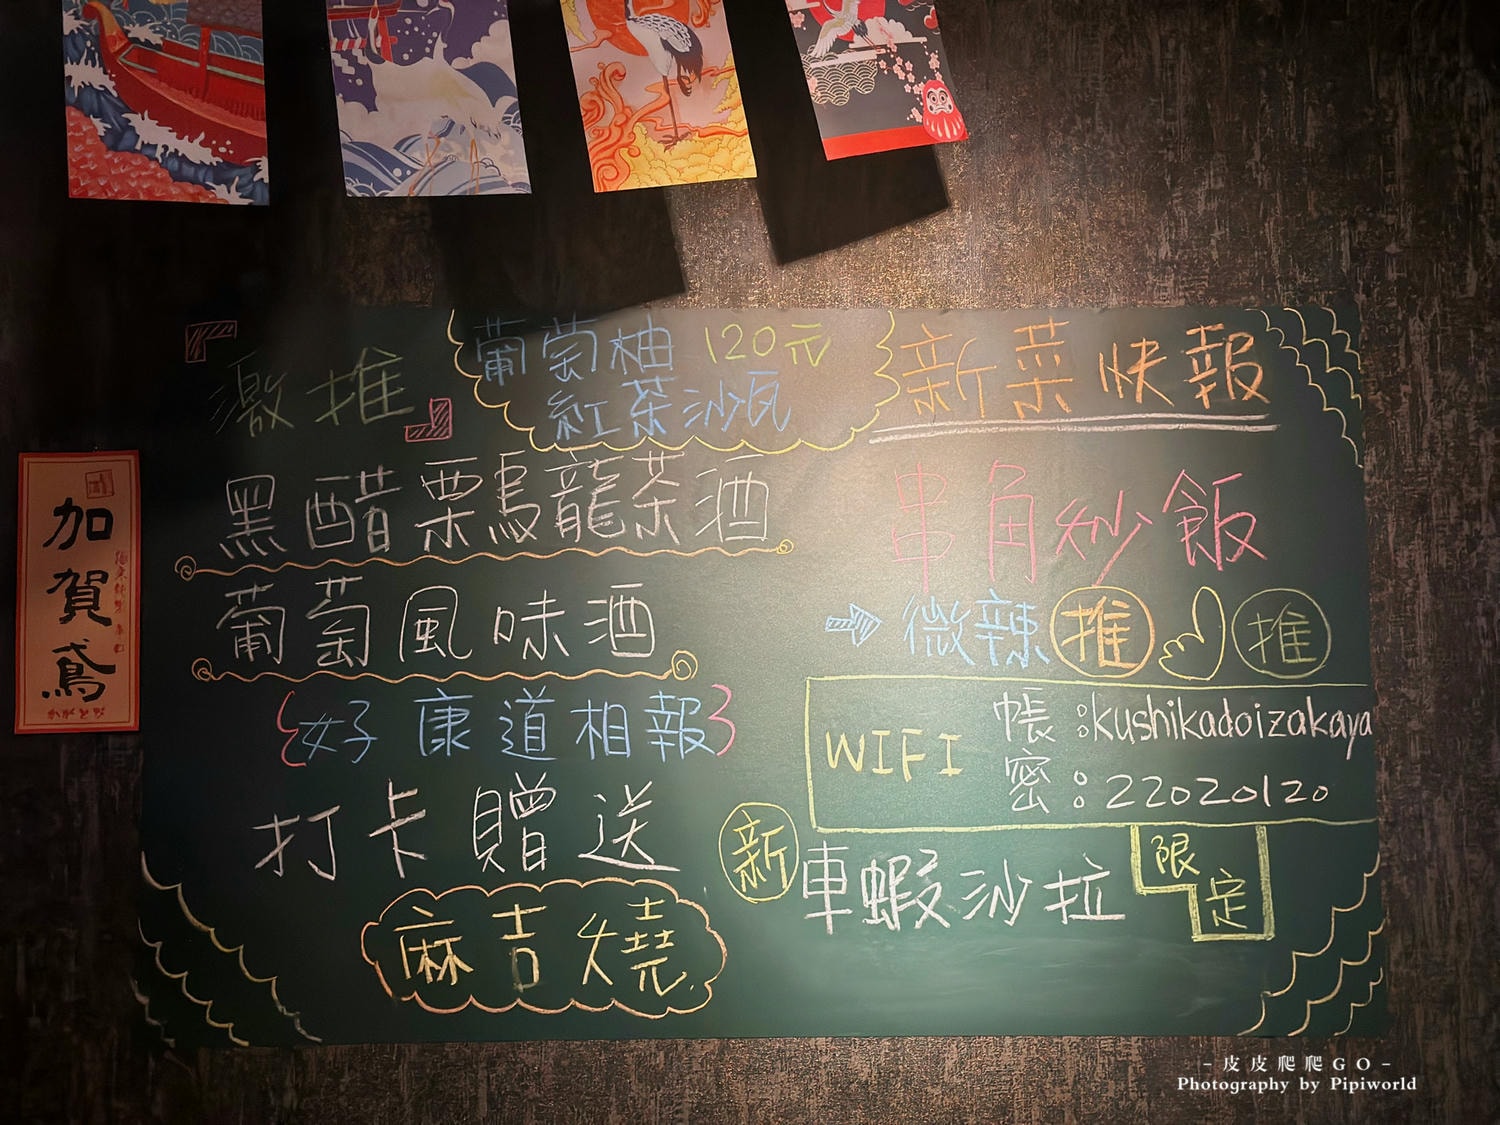 激推
葡萄柚 120元
紅茶沙瓦
黑醋栗烏龍茶酒
葡萄風味酒
好康道相報
打卡贈送
麻吉燒
新菜快報
串角炒飯
微辣 推 推
WIFI
帳:kushikadoizakaya
密:22020120
新 車蝦沙拉 限定
加賀鳶
かがとび
-皮皮爬爬GO-
Photography by Pipiworld